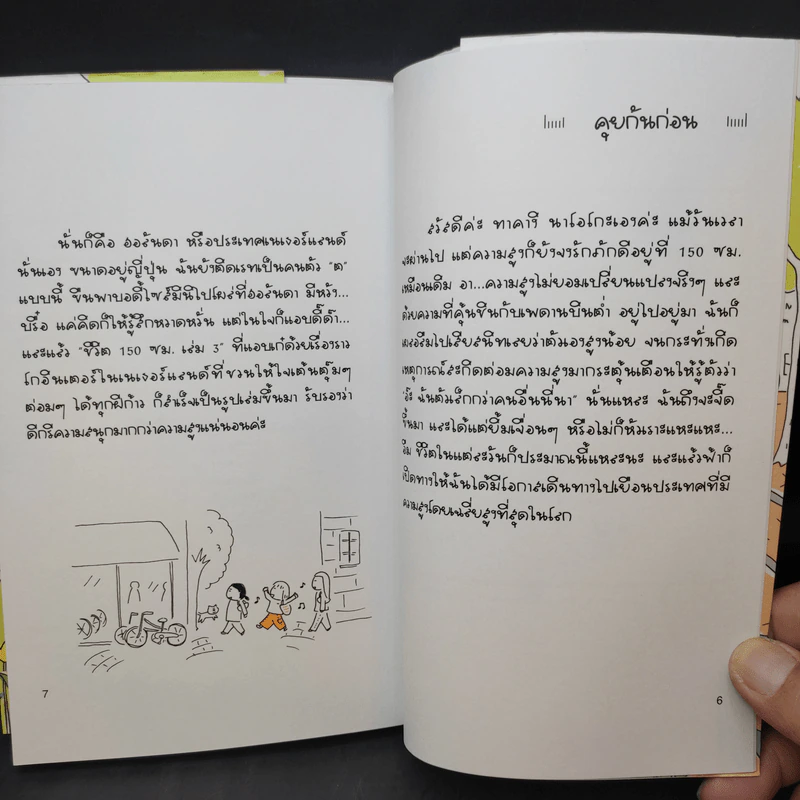 คุยกันก่อน
สวัสดีค่ะ ทาคางิ นาโอโกะเองค่ะ แม้วันเวลา
จะผ่านไป แต่ความสูงก็ยังจงรักภักดีอยู่ที่ 150 ซม.
เหมือนเดิม อา...ความสูงไม่ยอมเปลี่ยนแปลงจริงๆ และ
ด้วยความที่คุ้นชินกับเพดานบินต่ำ อยู่ไปอยู่มา ฉันก็
เลยลืมไปเสียสนิทเลยว่าตัวเองสูงน้อย จนกระทั่งเกิด
เหตุการณ์สะกิดต่อมความสูงมากระตุ้นเตือนให้รู้ตัวว่า
"อ๊ะ ฉันตัวเล็กกว่าคนอื่นนี่นา" นั่นแหละ ฉันถึงจะจี๊ด
ขึ้นมา และได้แต่ยิ้มเจื่อนๆ หรือไม่ก็หัวเราะแหะแหะ...
อืม ชีวิตในแต่ละวันก็ประมาณนี้แหละนะ และแล้วฟ้าก็
เปิดทางให้ฉันได้มีโอกาสเดินทางไปเยือนประเทศที่มี
ความสูงโดยเฉลี่ยสูงที่สุดในโลก
6
นั่นก็คือ ฮอลันดา หรือประเทศเนเธอร์แลนด์
นั่นเอง ขนาดอยู่ญี่ปุ่น ฉันยังติดเรทเป็นคนตัว "ต"
แบบนี้ ขืนพาบอดี้ไซส์มินิไปโผล่ที่ฮอลันดา มีหวัง...
บรื๋อ แค่คิดก็ให้รู้สึกหวาดหวั่น แต่ในใจก็แอบดี๊ด๊า...
และแล้ว "ชีวิต 150 ซม. เล่ม 3" ที่แอบเก๋ด้วยเรื่องราว
โกอินเตอร์ในเนเธอร์แลนด์ที่ชวนให้ใจเต้นตุ๊มๆ
ต่อมๆ ได้ทุกฝีก้าว ก็สำเร็จเป็นรูปเล่มขึ้นมา รับรองว่า
ดีกรีความสนุกมากกว่าความสูงแน่นอนค่ะ
7